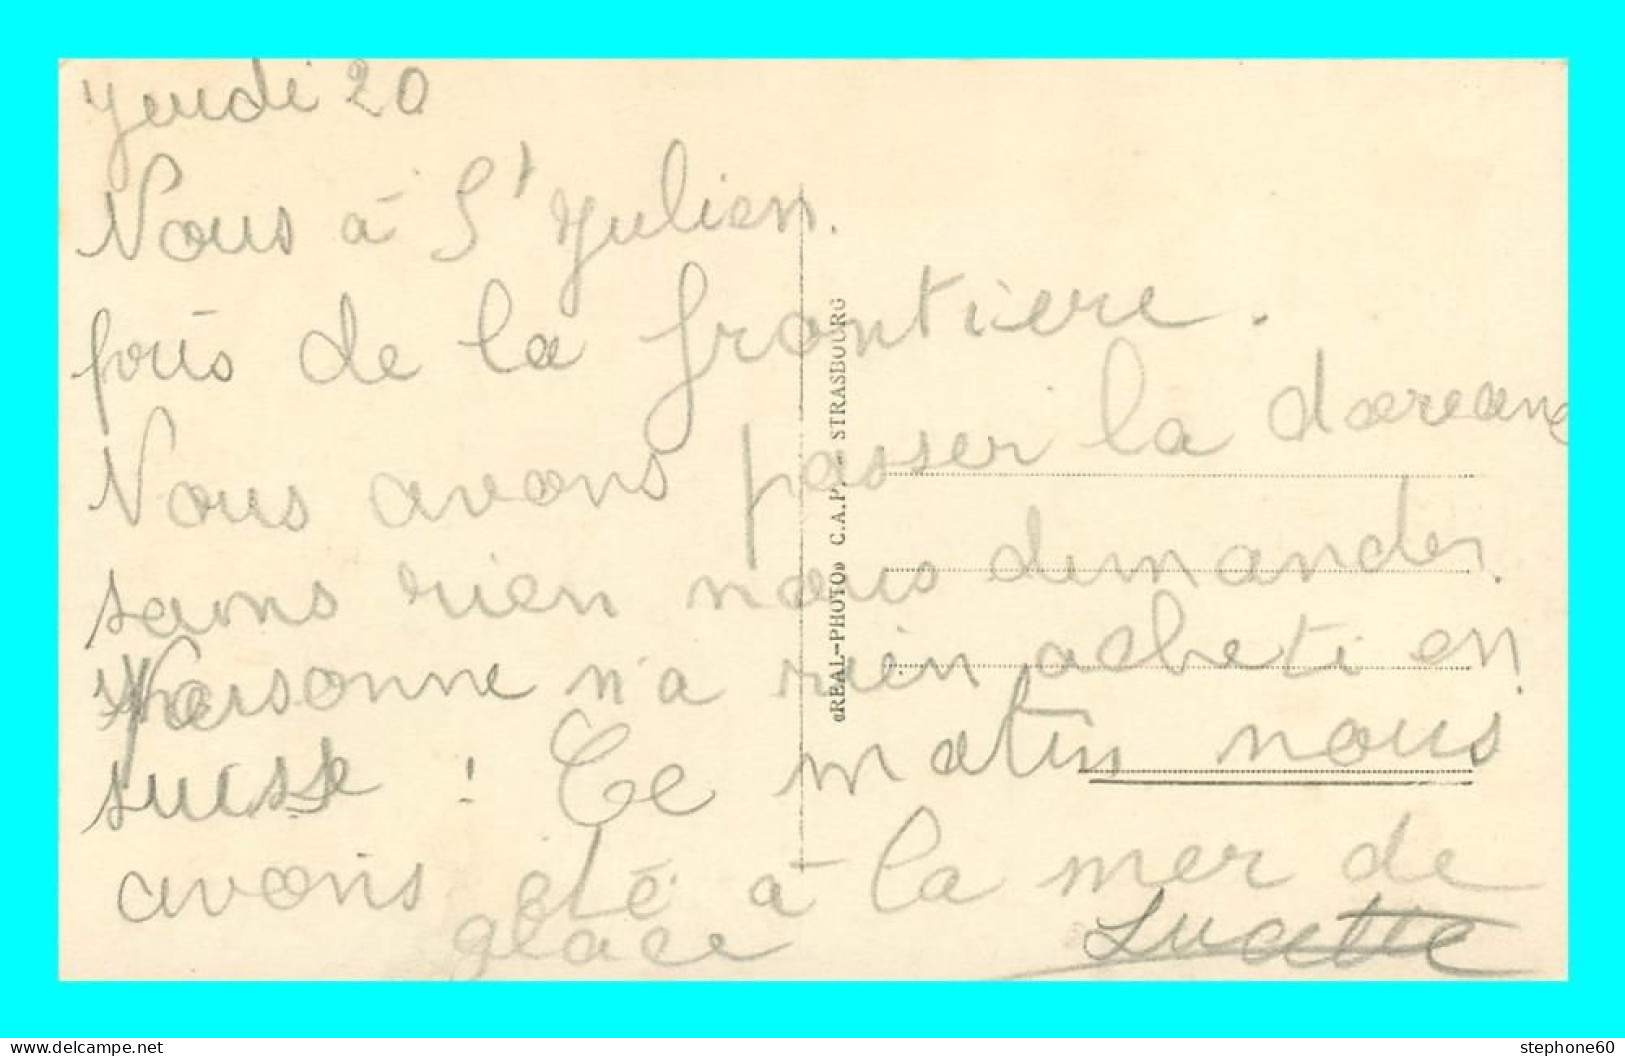 Jeudi 20
Nous à St Julien.
près de la frontiere.
Nous avons passer la doreane
sans rien nous demander.
Personne n'a rien acheti en
suisse ! Ce matin nous
avons été à la mer de
glace
Lucette
«REAL-PHOTO» C.A.P. - STRASBOURG
delcampe.net
stephone60